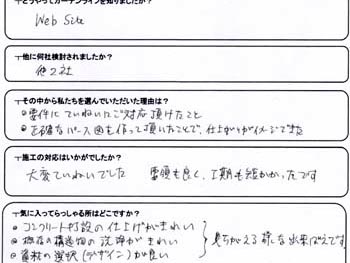 どうやってガーデンラインを知りましたか?
Web Site
他に何社検討されましたか?
他2社
その中から私たちを選んでいただいた理由は?
●要件にていねいにご対応頂けたこと
●正確なパース図も作って頂いたことで、仕上がりがイメージできた
施工の対応はいかがでしたか?
大変ていねいでした 電話も良く、工期も短かかったです
気に入ってらっしゃる所はどこですか?
●コンクリート打設の仕上げがきれい
●既存の構造物の洗浄がきれい
見ちがえる様な出来ばえです
の選択(デザイン)が良い